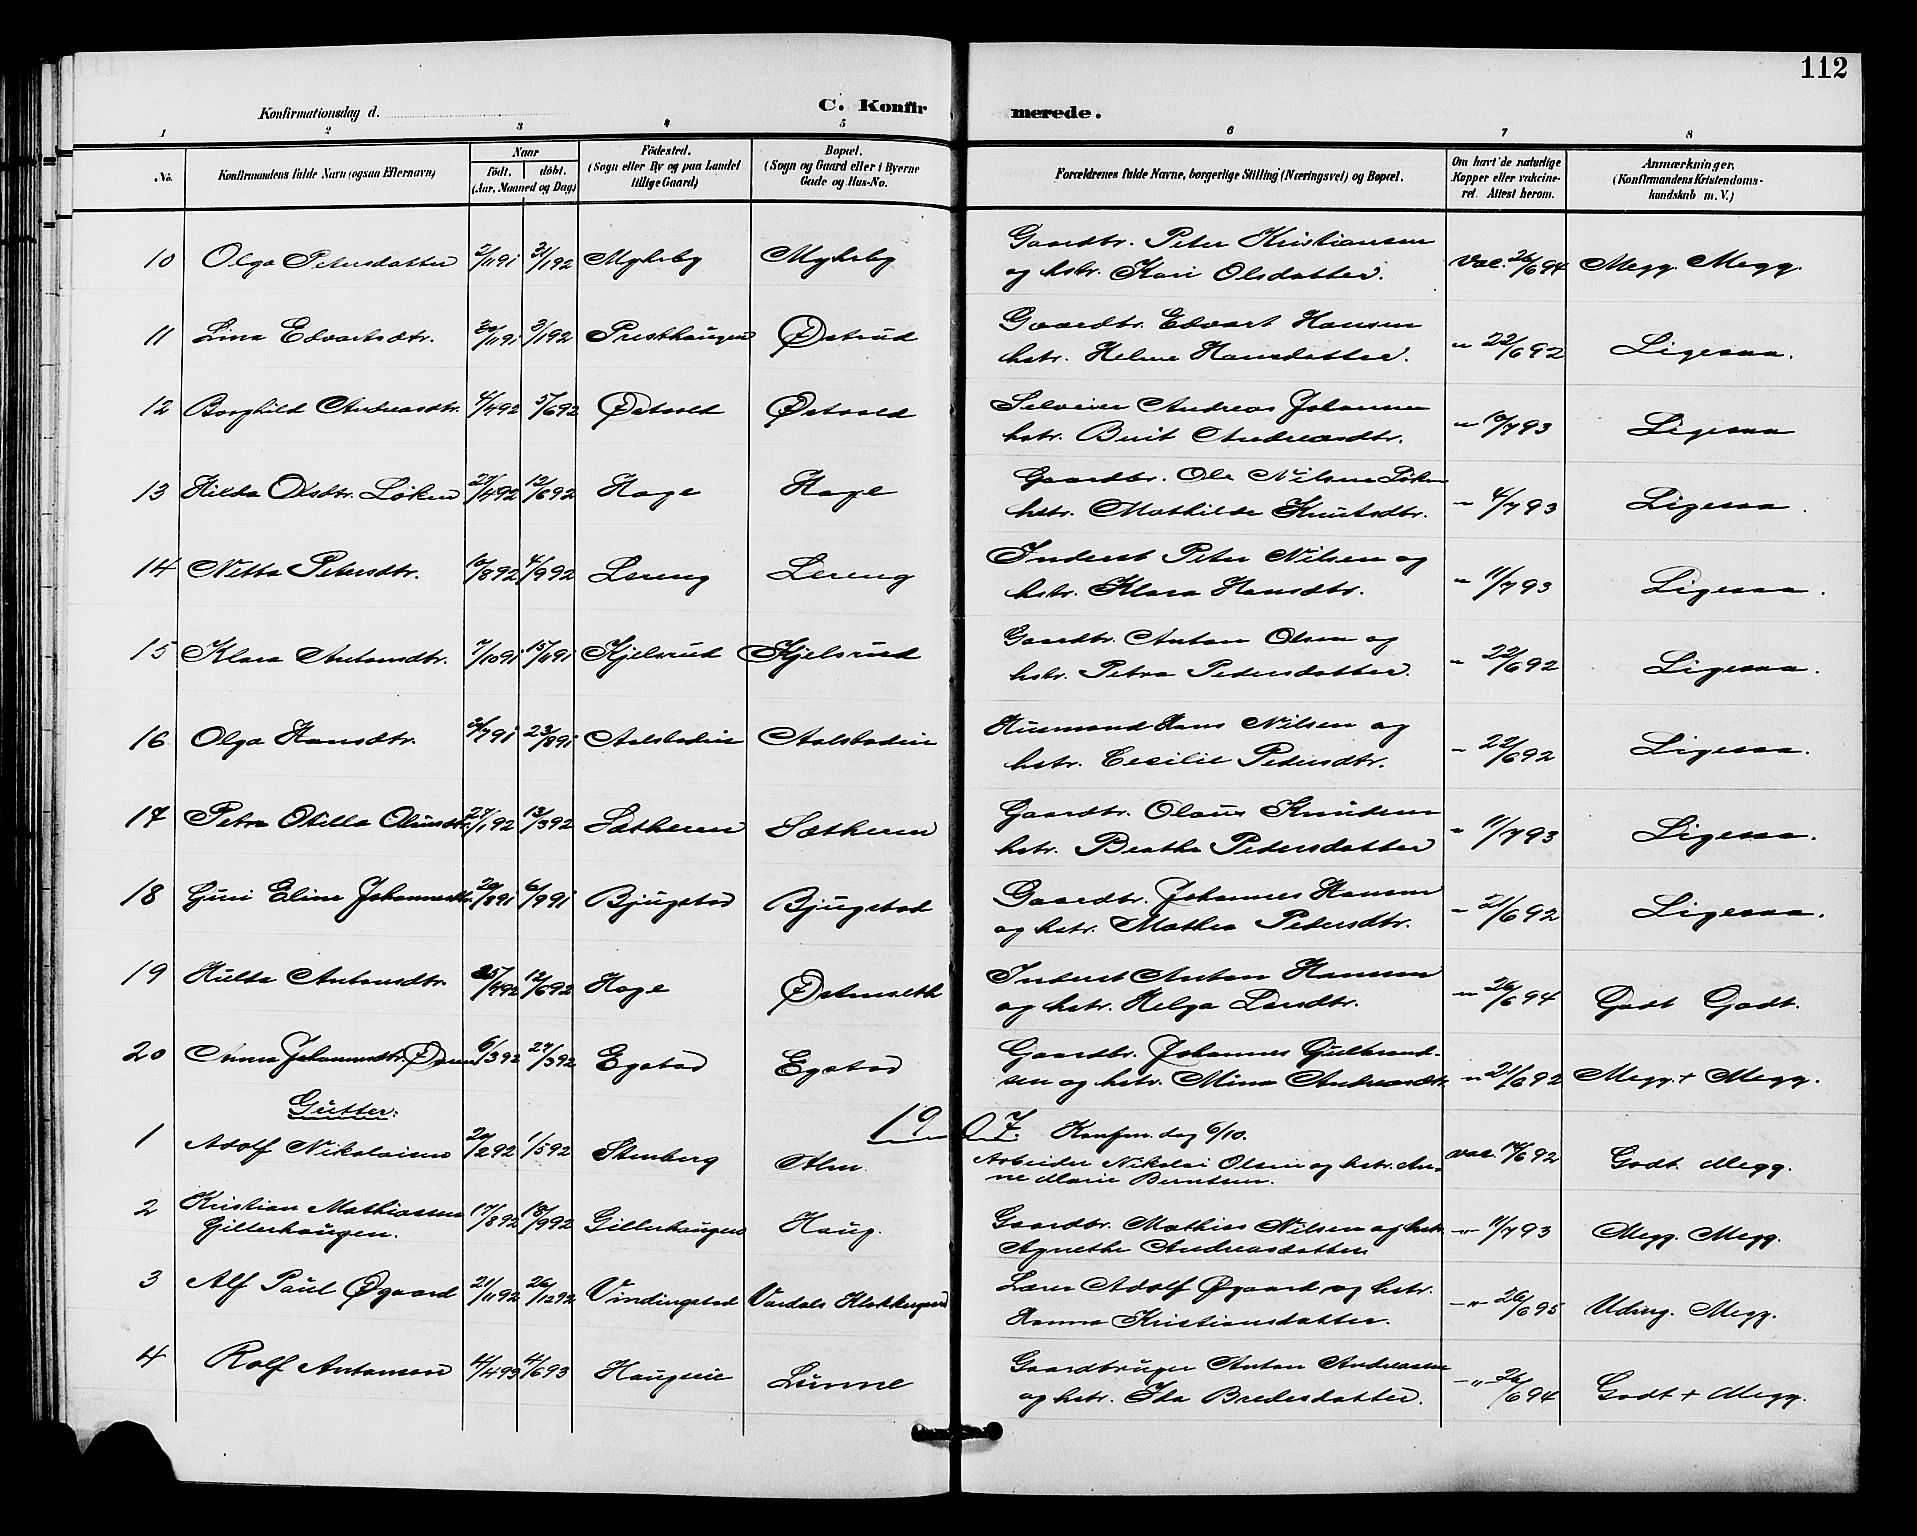 112
C. Konfirmerede.
Konfirmationsdag d.
1 2 3 4 5 6 7 8
No. Konfirmandens fulde Navn (ogsaa Efternavn) Naar født. døbt. (Aar, Maaned og Dag) Födested. (Sogn eller By og paa Landet tillige Gaard) Bopæl. (Sogn og Gaard eller i Byerne Gade og Hus-No. Forældrenes fulde Navne, borgerlige Stilling (Næringsvei) og Bopæl. Om havt de naturlige Kopper eller vakcineret. Attest herom. Anmærkninger. (Konfirmandens Kristendomskundskab m. V.)
10 Olga Petersdatter 2/11 91 31/1 92 Mykeby Mykeby Gaardbr. Peter Kristiansen
og hstr. Kari Olsdatter. Vac. 26/6 94 Megg. Megg.
11 Lina Edvartsdtr. 20/11 91 3/1 92 Presthaugen Østrud Gaardbr. Edvart Hansen
hstr. Helene Hansdatter. " 22/6 92 Ligesaa.
12 Borghild Andreasdtr. 4/4 92 5/6 92 Østvold Østvold Selveier Andreas Johannesen
hstr. Berit Andreasdtr. " 10/7 93 Ligesaa
13 Hilda Olsdtr. Løken 29/4 92 12/6 92 Hage Hage Gaardbr. Ole Nilsen Løken
hstr. Mathilde Knutsdtr. " 4/7 93 Ligesaa.
14 Netta Petersdtr. 10/8 92 4/9 92 Lereng Lereng Inderst Peter Nilsen og
hstr. Klara Hansdtr. " 11/7 93 Ligesaa.
15 Klara Antonsdtr. 7/10 91 15/11 91 Kjelsrud Kjelsrud Gaardbr. Anton Olsen og
hstr. Petra Pedersdatter. " 22/6 92 Ligesaa.
16 Olga Hansdtr. 23/8 91 Aalstadeie Aalstadeie Husmand Hans Nilsen og
hstr. Cecilie Pedersdtr. " 22/6 92 Ligesaa.
17 Petra Otilla Olausdtr. 27/1 92 13/3 92 Sætheren Sætheren Gaardbr. Olaus Knudsen
hstr. Beathe Pedersdatter " 11/7 93 Ligesaa.
18 Guri Eline Johannesdtr. 6/9 91 Bjugstad Bjugstad Gaardbr. Johannes Hansen
og hstr. Mathea Pedersdtr. " 21/6 92 Ligesaa.
19 Hulda Antonsdtr. 25/4 92 12/6 92 Hage Inderst Anton Hansen
og hstr. Helga Larsdtr. " 26/6 94 Godt Godt.
20 Anna Johannesdtr. 6/3 92 27/3 92 Egstad Egstad Gaardbr. Johannes Gulbrand-
sen og hstr. Mina Andreasdtr. " 21/6 92 Megg. + Megg.
Gutter: 1907. Konfm. dag 6/10.
1 Adolf Nikolaisen 20/2 92 1/5 92 Stenberg Alm. Arbeider Nikolai Olsen og hstr. An-
ne Marie Berntsen. Vac. 14/6 92 Godt. Megg.
2 Kristian Mathiassen
Gillerhaugen. 17/8 92 18/9 92 Gillerhaugen Haug. Gaardbr. Mathias Nilsen og hstr.
Agnethe Andreasdatter " 11/7 93 Megg. Megg.
3 Alf Paul Øgaard 21/11 92 26/12 92 Vindingstad Vardals Klokkergaard Lærer Adolf Øgaard og hstr.
Hanna Kristiansdatter. " 26/6 95 Udmg. Megg.
4 Rolf Antonsen 4/4 93 4/6 93 Haugseie Lunne Gaardbruger Anton Andreassen
og hstr. Ida Bredesdatter. " 26/6 94 Godt + Megg.